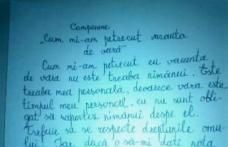 Compunere
"Cum mi-am petrecut vacanta
de vară"
Cum mi-am petrecut eu vacanta
de vara nu este treaba nimănui. Este
treaba mea personală, deoarece vara este
timpul meu personal, eu nu sunt obli-
gat să raportez nimănui despre el.
Trebuie să se respecte drepturile omu-
lui. Iar dacă o să-mi dati nota